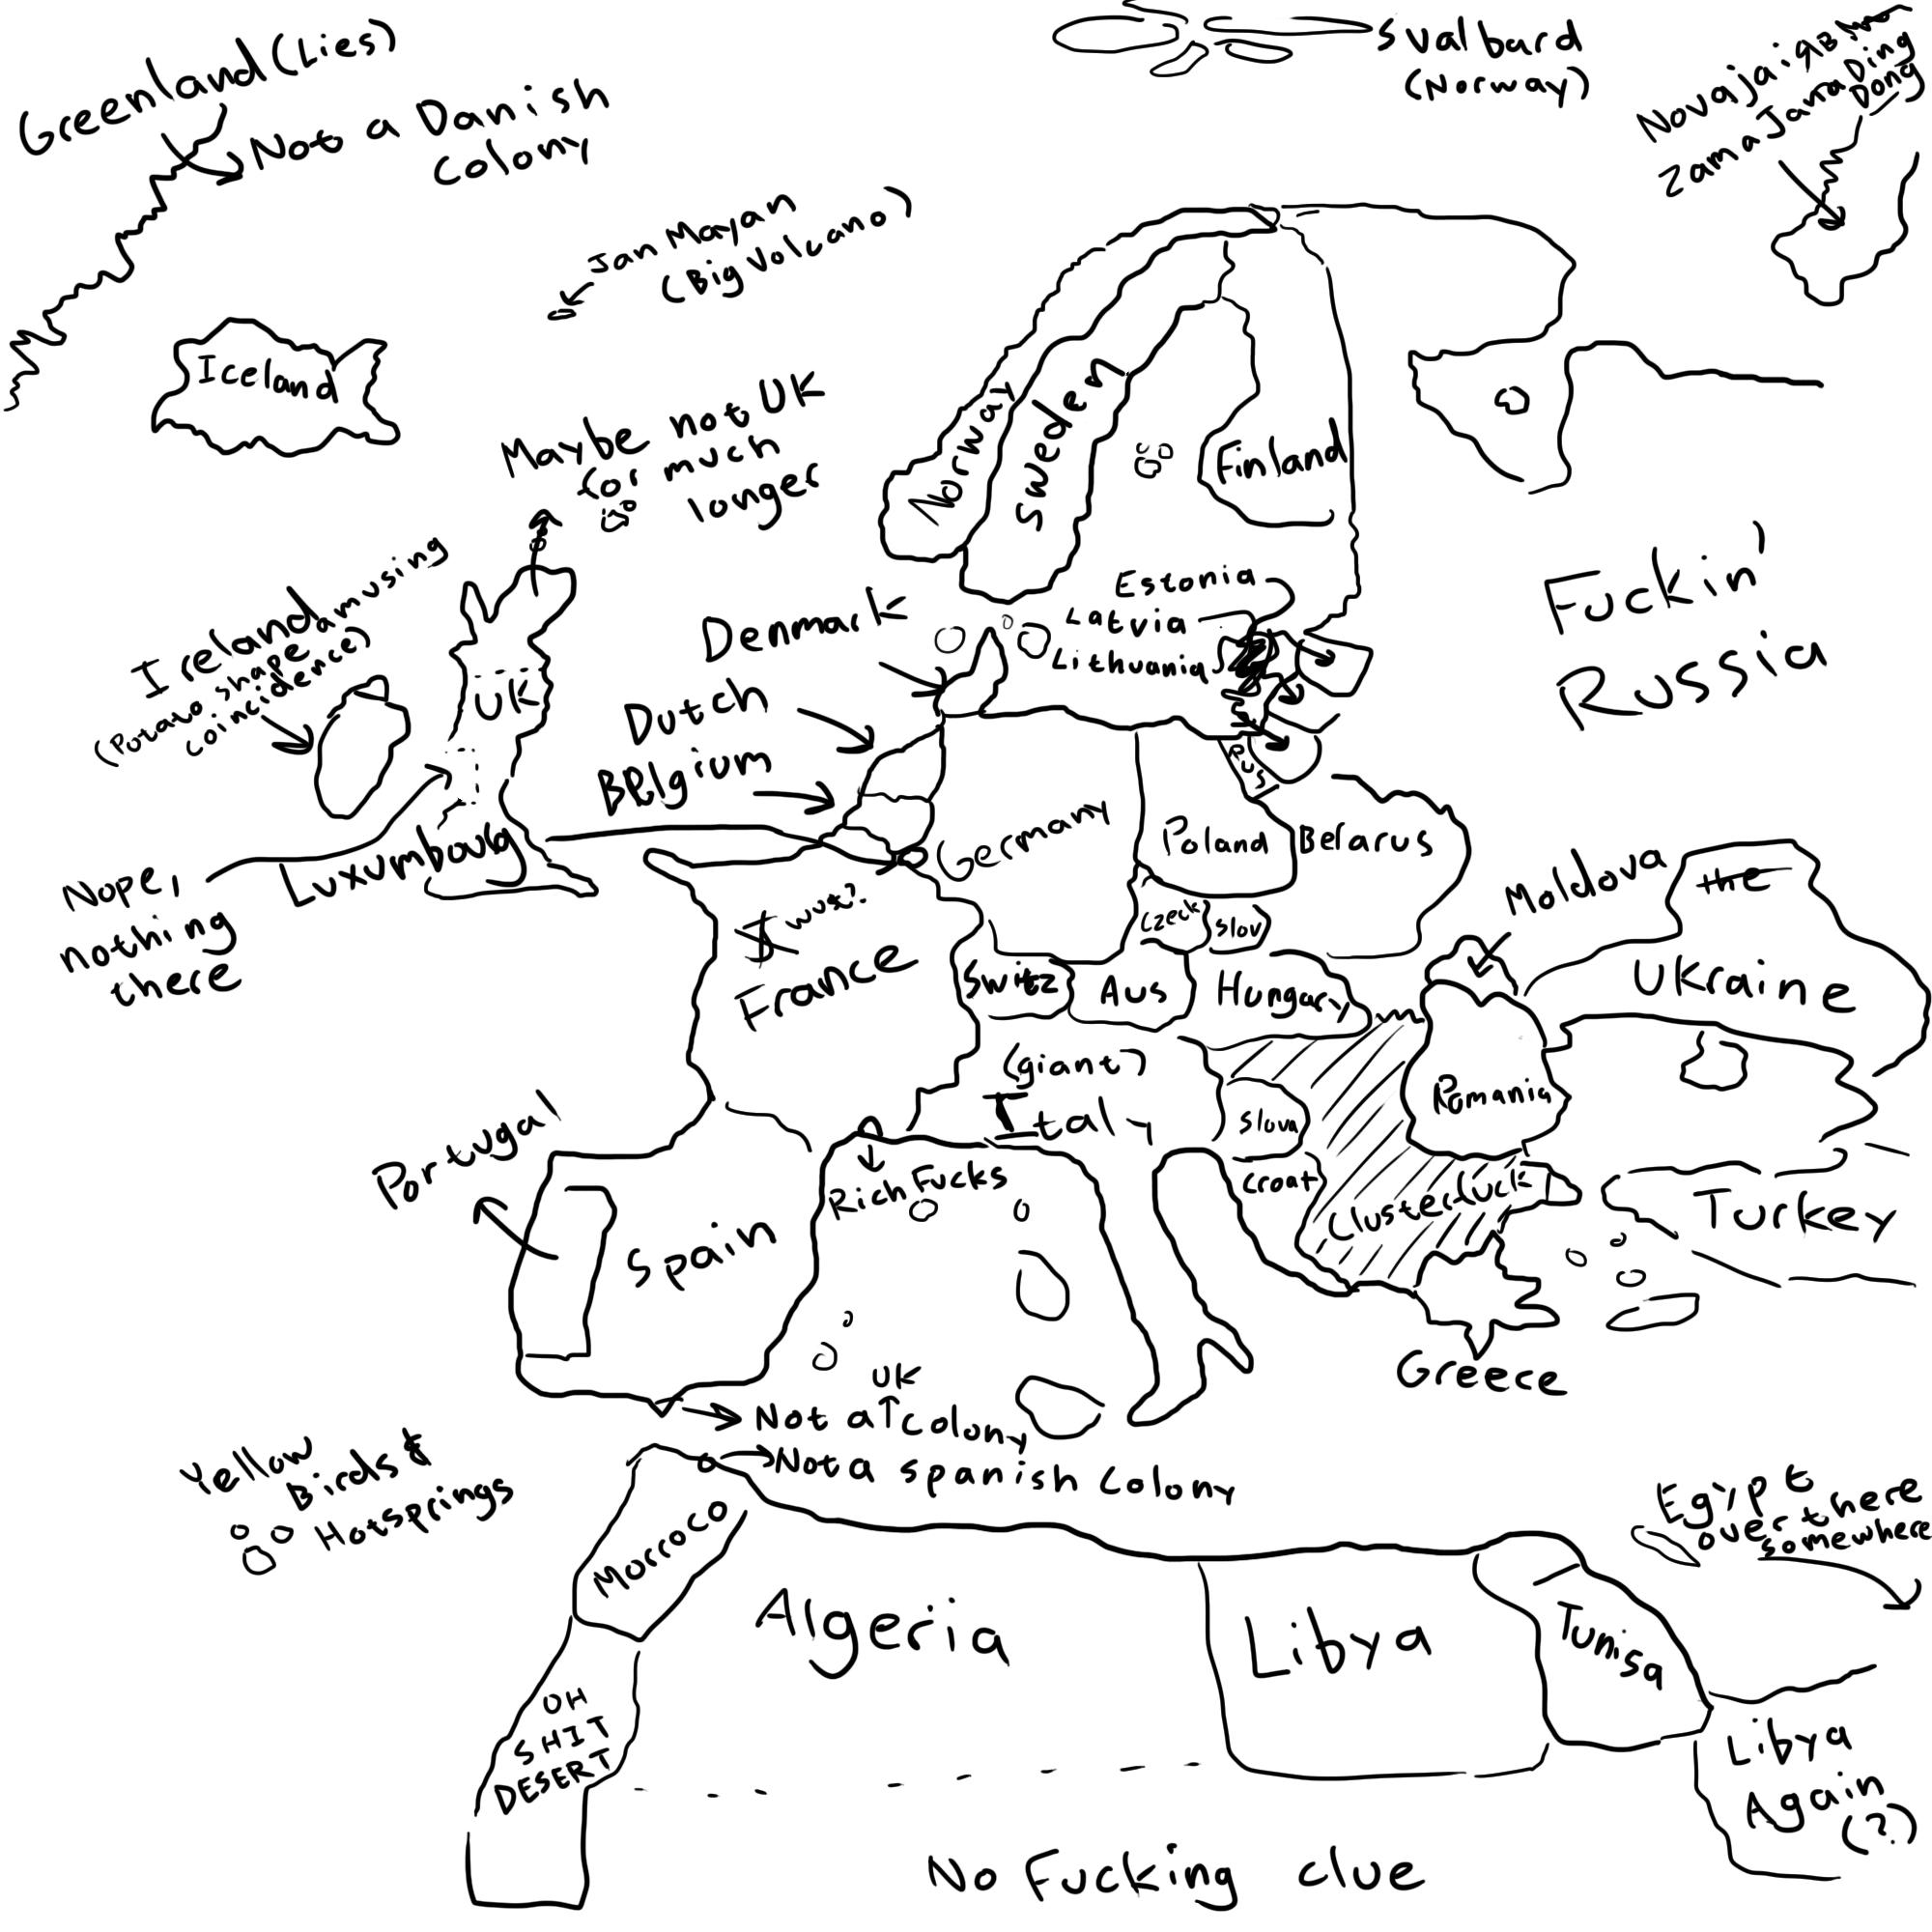 Greenland (Lies)
Not a Danish
Colony
Svalbard
(Norway)
Novaja
Zama Jama Ding
Dong
Jan Mayan
(Big Volcano)
Iceland
Maybe not UK
for much
longer
Norway
Sweden
Finland
Fuckin'
Russia
Ireland
(Potato shape amusing
coincidence)
UK
Denmark
Estonia
Latvia
Lithuania
Dutch
Belgium
Luxumbourg
Nope,
nothing
there
Germany
Rus
Poland
Belarus
Czeck
Slov
Moldova
the
Ukraine
France
Switz
Aus
Hungary
(giant)
Italy
Slova
Croat
Romania
Clusterfuck
Turkey
Greece
Portugal
Spain
Rich Fucks
UK
Not a Colony
Not a Spanish Colony
Yellow
Birds &
Hotsprings
Morroco
Algeria
Libya
Tunisa
Egipt
over there
somewhere
Libya
Again
(?)
OH
SHIT
DESERT
No Fucking clue